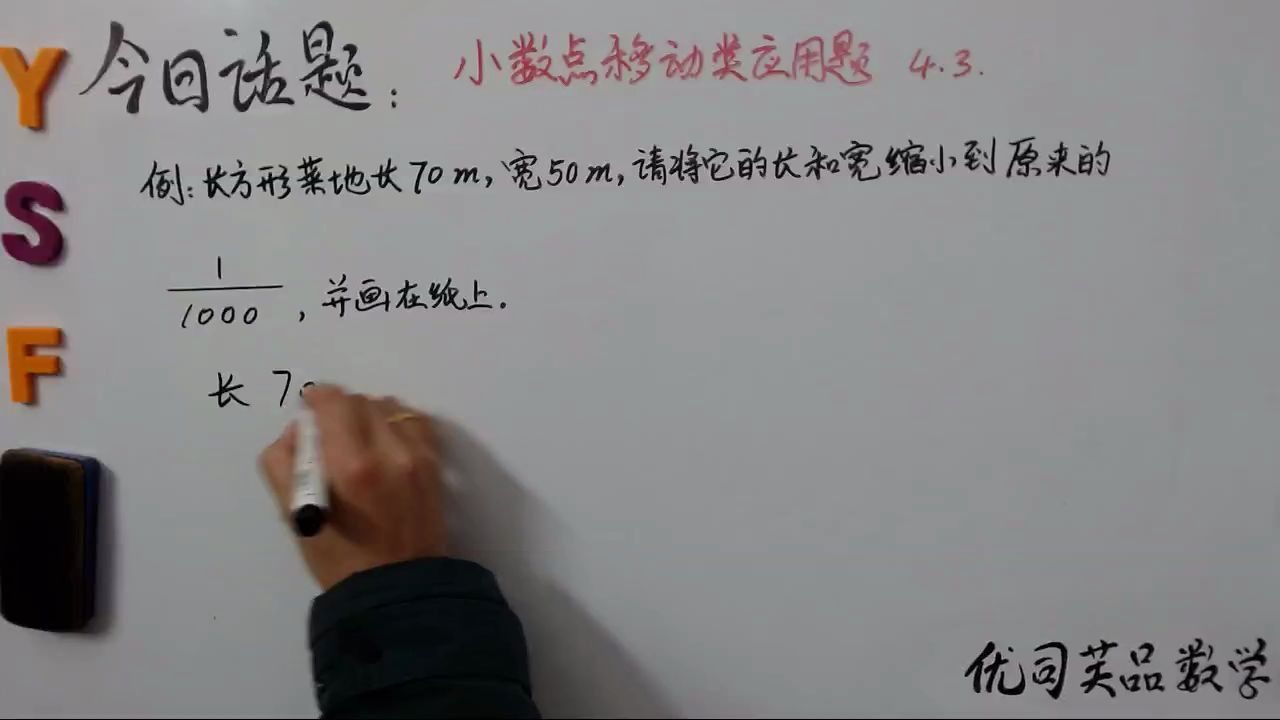 YSF
今日话题:
小数点移动类应用题 4.3.
例:长方形菜地长70m,宽50m,请将它的长和宽缩小到原来的
1/1000,并画在纸上.
长 70
优司芙品数学